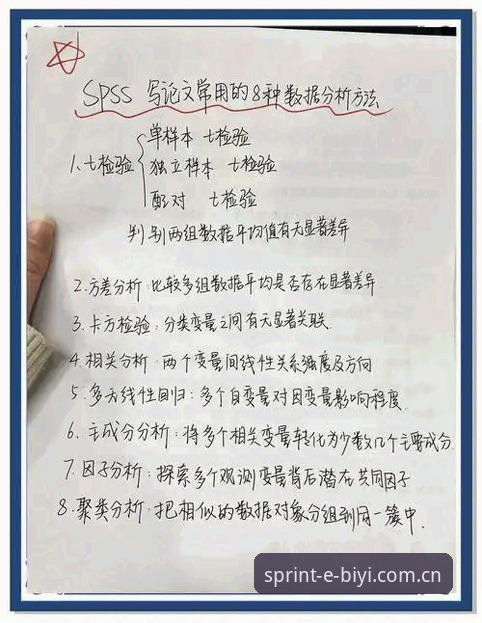 SPSS 写论文常用的8种数据分析方法
单样本 t检验
1、t检验 独立样本 t检验
配对 t检验
判别两组数据平均值有无显著差异
2.方差分析:比较多组数据平均是否存在显著差异
3.卡方检验:分类变量之间有无显著关联.
4.相关分析:两个变量间线性关系强度及方向
5.多元线性回归:多个自变量对因变量影响程度.
6.主成分分析:将多个相关变量转化为少数几个主要成分.
7.因子分析:探索多个观测变量背后潜在共同因子
8.聚类分析:把相似的数据对象分组到同一簇中.
sprint-e-biyi.com.cn